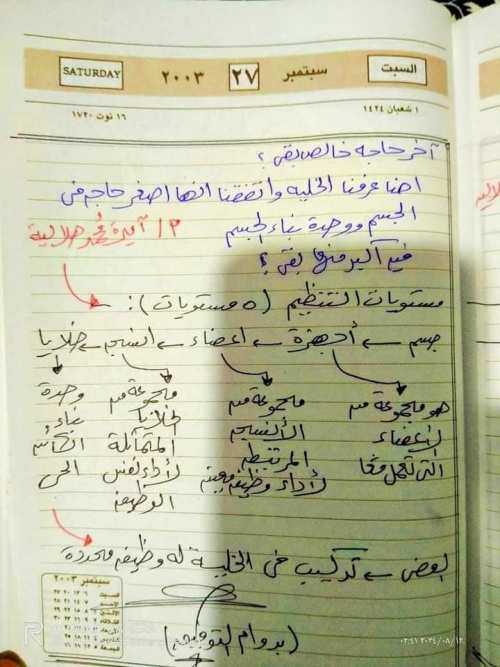 السبت
سبتمبر
٢٧
٢٠٠٣
SATURDAY
١ شعبان ١٤٢٤
١٦ توت ١٧٢٠
آخر حاجه خالص بقى ؟
احنا عرفنا الخليه واتفقنا انها اصغر حاجه فى
الجسم ووحدة بناء الجسم
م/ أميرة محمد هلالية
فيه أكبر منها بقى ؟
مستويات التنظيم (٥ مستويات) :
جسم ← أجهزة ← اعضاء ← انسجه ← خلايا
هو مجموعة من
لأعضاء
التى تعمل معًا
مجموعة من
الأنسجه
المرتبطه
لأداء وظيفه معينه
مجموعة من
الخلايا
المتماثلة
لأداء نفس
الوظيفه
وحدة
بناء
الكائن
الحى
العضى ← تركيب فى الخلية له وظيفه محددة
(بدوام التوفيق)
سبتمبر ٢٠٠٣
السبت ٦ ١٣ ٢٠ ٢٧